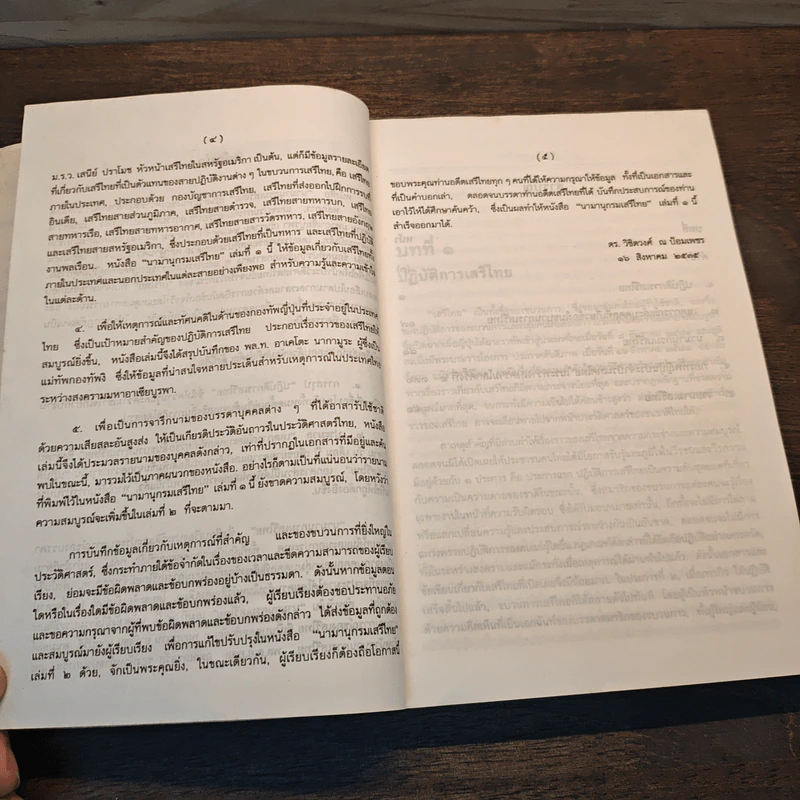 (๔)
ม.ร.ว. เสนีย์ ปราโมช หัวหน้าเสรีไทยในสหรัฐอเมริกา เป็นต้น, แต่ก็มีข้อมูลรายละเอียด
ที่เกี่ยวกับเสรีไทยที่เป็นตัวแทนของสายปฏิบัติงานต่าง ๆ ในขบวนการเสรีไทย, คือ เสรีไทย
ภายในประเทศ, ประกอบด้วย กองบัญชาการเสรีไทย, เสรีไทยที่ส่งออกไปฝึกการรบที่
อินเดีย, เสรีไทยสายส่วนภูมิภาค, เสรีไทยสายตำรวจ, เสรีไทยสายทหารบก, เสรีไทย
สายทหารเรือ, เสรีไทยสายทหารอากาศ, เสรีไทยสายสารวัตรทหาร, เสรีไทยสายอังกฤษ
และเสรีไทยสายสหรัฐอเมริกา, ซึ่งประกอบด้วยเสรีไทยที่เป็นทหาร และเสรีไทยที่ปฏิบัติ
งานพลเรือน. หนังสือ “นามานุกรมเสรีไทย” เล่มที่ ๑ นี้ ให้ข้อมูลเกี่ยวกับเสรีไทยทั้ง
ภายในประเทศและนอกประเทศในแต่ละสายอย่างเพียงพอ สำหรับความรู้และความเข้าใจ
ในแต่ละด้าน.
๔. เพื่อให้เหตุการณ์และทัศนคติในด้านของกองทัพญี่ปุ่นที่ประจำอยู่ในประเทศ
ไทย ซึ่งเป็นเป้าหมายสำคัญของปฏิบัติการเสรีไทย ประกอบเรื่องราวของเสรีไทยให้
สมบูรณ์ยิ่งขึ้น, หนังสือเล่มนี้จึงได้สรุปบันทึกของ พล.ท. อาเคโตะ นากามูระ ผู้ซึ่งเป็น
แม่ทัพกองทัพงิ ซึ่งให้ข้อมูลที่น่าสนใจหลายประเด็นสำหรับเหตุการณ์ในประเทศไทย
ระหว่างสงครามมหาอาเซียบูรพา.
๕. เพื่อเป็นการจารึกนามของบรรดาบุคคลต่าง ๆ ที่ได้อาสารับใช้ชาติ
ด้วยความเสียสละอันสูงส่ง ให้เป็นเกียรติประวัติอันถาวรในประวัติศาสตร์ไทย, หนังสือ
เล่มนี้จึงได้ประมวลรายนามของบุคคลดังกล่าว, เท่าที่ปรากฏในเอกสารที่มีอยู่และค้น
พบในขณะนี้, มารวมไว้เป็นภาคผนวกของหนังสือ. อย่างไรก็ตามเป็นที่แน่นอนว่ารายนาม
ที่พิมพ์ไว้ในหนังสือ “นามานุกรมเสรีไทย” เล่มที่ ๑ นี้ ยังขาดความสมบูรณ์, โดยหวังว่า
ความสมบูรณ์จะเพิ่มขึ้นในเล่มที่ ๒ ที่จะตามมา.
การบันทึกข้อมูลเกี่ยวกับเหตุการณ์ที่สำคัญ และของขบวนการที่ยิ่งใหญ่ใน
ประวัติศาสตร์, ซึ่งกระทำภายใต้ข้อจำกัดในเรื่องของเวลาและขีดความสามารถของผู้เรียบ
เรียง, ย่อมจะมีข้อผิดพลาดและข้อบกพร่องอยู่บ้างเป็นธรรมดา. ดังนั้นหากข้อมูลตอน
ใดหรือในเรื่องใดมีข้อผิดพลาดและข้อบกพร่องแล้ว, ผู้เรียบเรียงต้องขอประทานอภัย
และขอความกรุณาจากผู้ที่พบข้อผิดพลาดและข้อบกพร่องดังกล่าว ได้ส่งข้อมูลที่ถูกต้อง
และสมบูรณ์มายังผู้เรียบเรียง เพื่อการแก้ไขปรับปรุงในหนังสือ “นามานุกรมเสรีไทย”
เล่มที่ ๒ ด้วย, จักเป็นพระคุณยิ่ง, ในขณะเดียวกัน, ผู้เรียบเรียงก็ต้องถือโอกาสนี้
(๕)
ขอบพระคุณท่านอดีตเสรีไทยทุก ๆ คนที่ได้ให้ความกรุณาให้ข้อมูล ทั้งที่เป็นเอกสารและ
ที่เป็นคำบอกเล่า, ตลอดจนบรรดาท่านอดีตเสรีไทยที่ได้ บันทึกประสบการณ์ของท่าน
เอาไว้ให้ได้ศึกษาค้นคว้า, ซึ่งเป็นผลทำให้หนังสือ “นามานุกรมเสรีไทย” เล่มที่ ๑ นี้
สำเร็จออกมาได้.
ดร. วิชิตวงศ์ ณ ป้อมเพชร
๑๖ สิงหาคม ๒๕๓๕
บทที่ ๑
ปฏิบัติการเสรีไทย